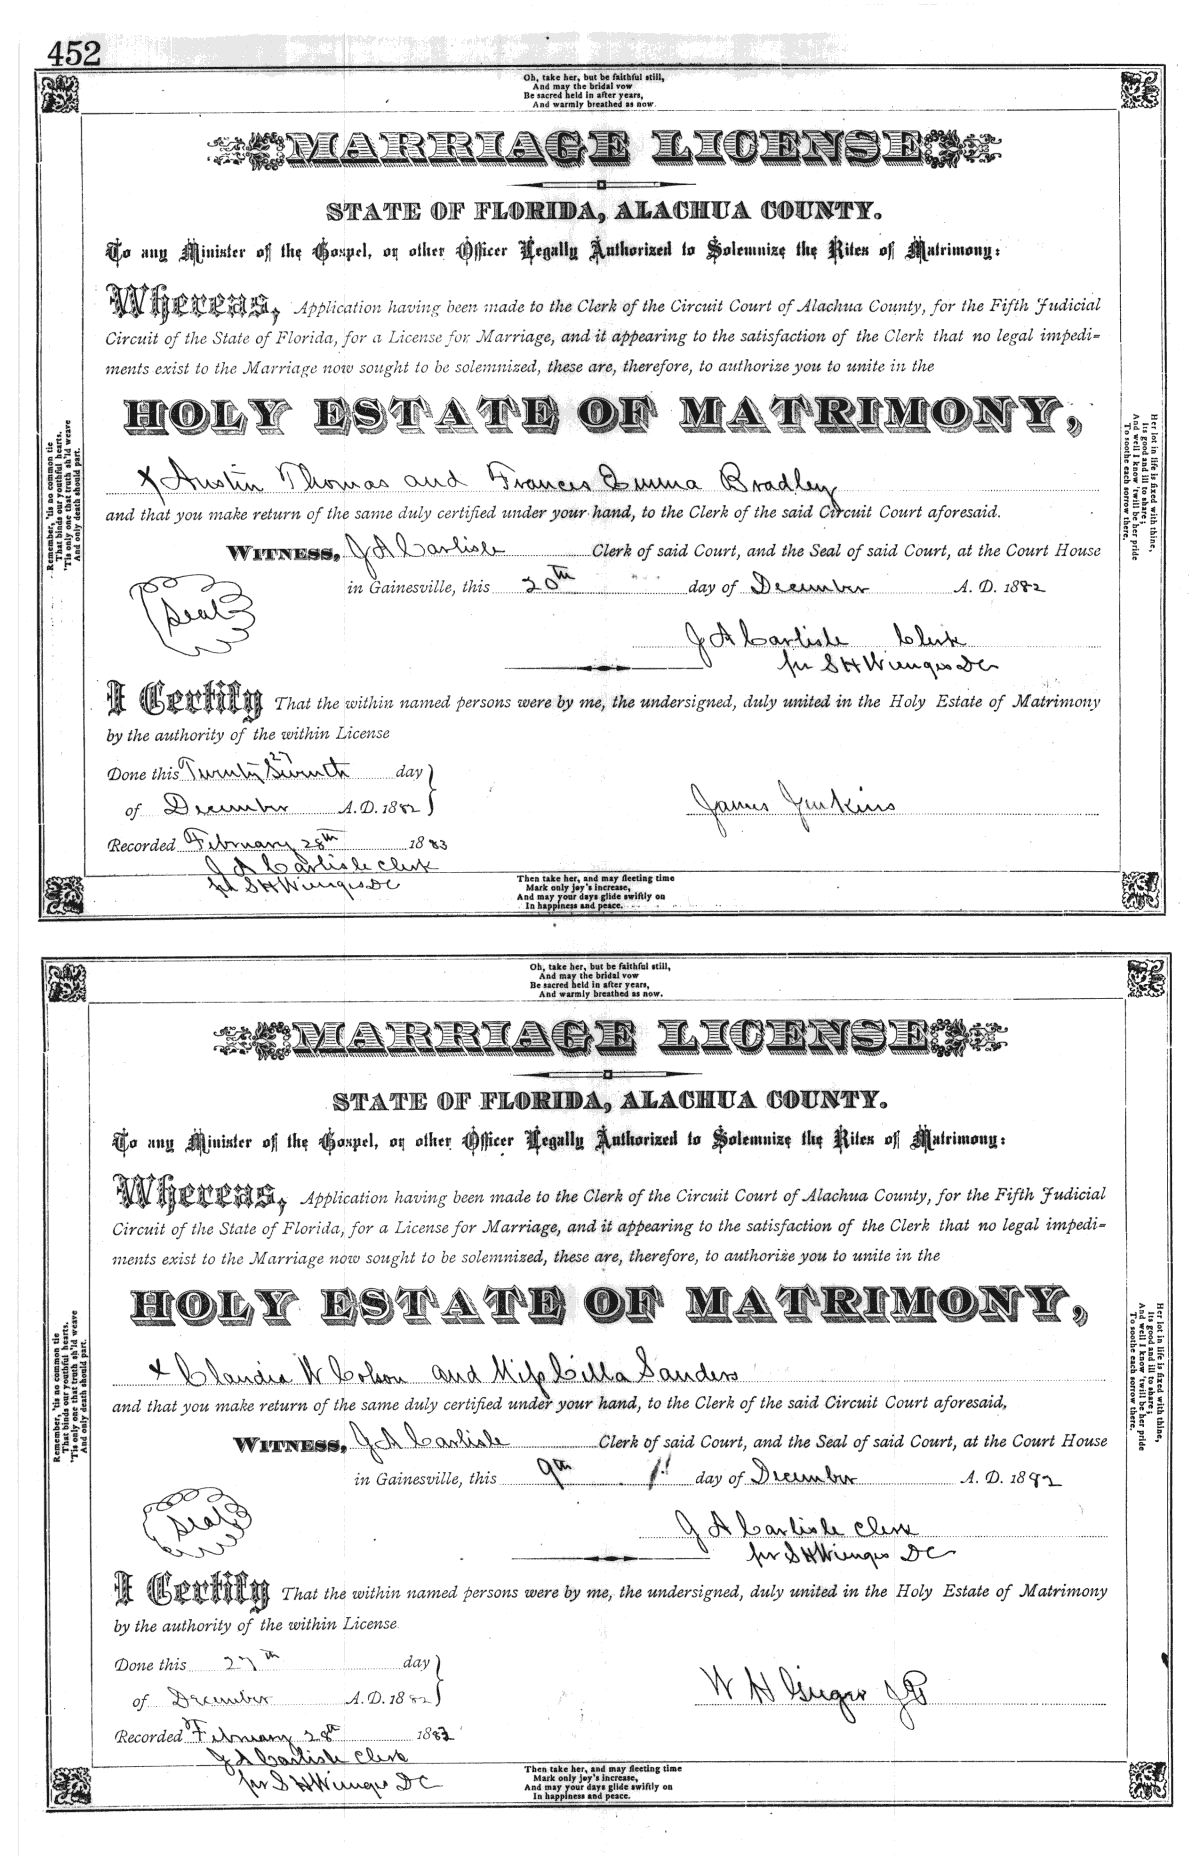 452
Oh, take her, but be faithful still,
And may the bridal vow
Be sacred held in after years,
And warmly breathed as now.
MARRIAGE LICENSE
STATE OF FLORIDA, ALACHUA COUNTY.
To any Minister of the Gospel, or other Officer Legally Authorized to Solemnize the Rites of Matrimony:
Whereas, Application having been made to the Clerk of the Circuit Court of Alachua County, for the Fifth Judicial
Circuit of the State of Florida, for a License for Marriage, and it appearing to the satisfaction of the Clerk that no legal impedi-
ments exist to the Marriage now sought to be solemnized, these are, therefore, to authorize you to unite in the
HOLY ESTATE OF MATRIMONY,
x Austin Thomas and Frances Emma Bradley
and that you make return of the same duly certified under your hand, to the Clerk of the said Circuit Court aforesaid.
WITNESS, J A Carlisle Clerk of said Court, and the Seal of said Court, at the Court House
in Gainesville, this 20th day of December A. D. 1882
Seal
J A Carlisle Clerk
per S H Wienges DC
I Certify That the within named persons were by me, the undersigned, duly united in the Holy Estate of Matrimony
by the authority of the within License
Done this Twenty Seventh 27 day
of December A. D. 1882
James Jenkins
Recorded February 28th 1883
J A Carlisle Clerk
per S H Wienges DC
Then take her, and may fleeting time
Mark only joy's increase,
And may your days glide swiftly on
In happiness and peace.
Remember, 'tis no common tie
That binds our youthful hearts.
'Tis only one that truth sh'ld weave
And only death should part.
Her lot in life is fixed with thine,
Its good and ill to share;
And well I know 'twill be her pride
To soothe each sorrow there.
Oh, take her, but be faithful still,
And may the bridal vow
Be sacred held in after years,
And warmly breathed as now.
MARRIAGE LICENSE
STATE OF FLORIDA, ALACHUA COUNTY.
To any Minister of the Gospel, or other Officer Legally Authorized to Solemnize the Rites of Matrimony:
Whereas, Application having been made to the Clerk of the Circuit Court of Alachua County, for the Fifth Judicial
Circuit of the State of Florida, for a License for Marriage, and it appearing to the satisfaction of the Clerk that no legal impedi-
ments exist to the Marriage now sought to be solemnized, these are, therefore, to authorize you to unite in the
HOLY ESTATE OF MATRIMONY,
x Claudia W Colson and Miss Cilla Sanders
and that you make return of the same duly certified under your hand, to the Clerk of the said Circuit Court aforesaid,
WITNESS, J A Carlisle Clerk of said Court, and the Seal of said Court, at the Court House
in Gainesville, this 9th day of December A. D. 1882
Seal
J A Carlisle Clerk
per S H Wienges DC
I Certify That the within named persons were by me, the undersigned, duly united in the Holy Estate of Matrimony
by the authority of the within License
Done this 27th day
of December A. D. 1882
W H Geiger JP
Recorded February 28th 1883
J A Carlisle Clerk
per S H Wienges DC
Then take her, and may fleeting time
Mark only joy's increase,
And may your days glide swiftly on
In happiness and peace.
Remember, 'tis no common tie
That binds our youthful hearts.
'Tis only one that truth sh'ld weave
And only death should part.
Her lot in life is fixed with thine,
Its good and ill to share;
And well I know 'twill be her pride
To soothe each sorrow there.